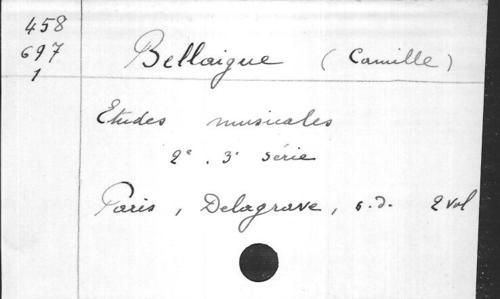 458
697
1
Bellaigue (Camille)
Etudes musicales
2e. 3e série
Paris, Delagrave, s.d. 2 vol